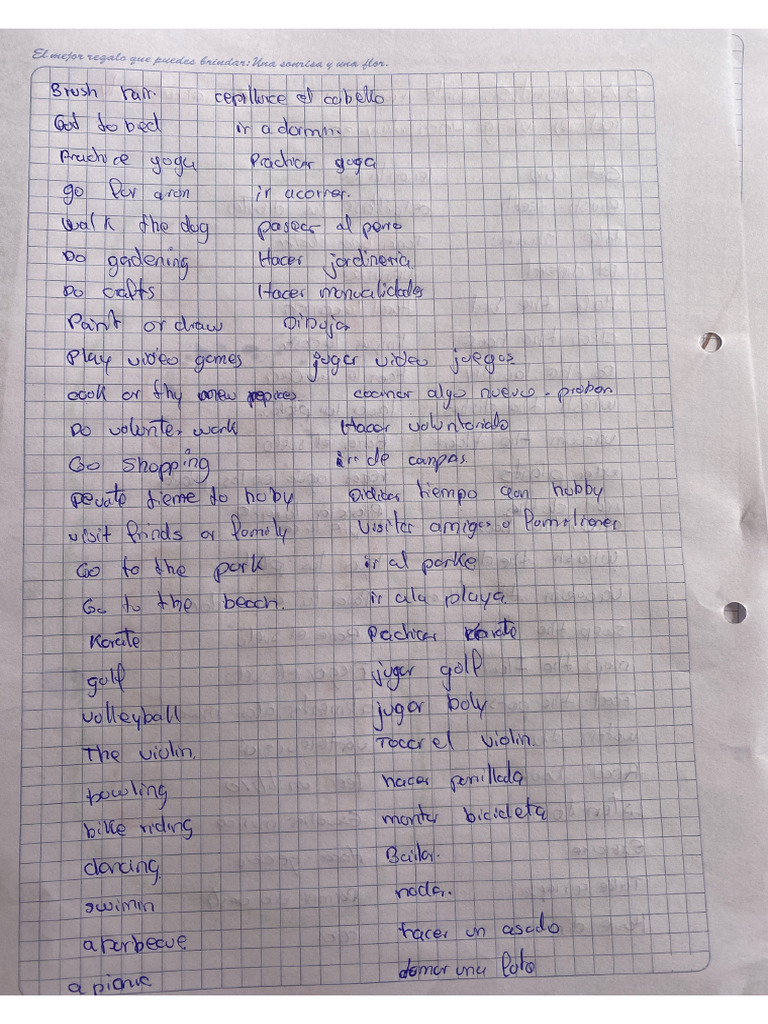 El mejor regalo que puedes brindar: Una sonrisa y una flor.
Brush hair. cepillarce el cabello
God to bed ir a dormir.
Prachice yoga Prachicar yoga
go for aron ir acorrer.
walk the dog pasear al perro
Do gadening Hacer jardineria
Do crafts Hacer manualidades
Paint or draw Dibujar
Play video games jugar video juegos.
cook or thy new cocinar algo nuevo. probar
Do volunter work Hacer voluntariado
Go shopping ir de canpas.
tieme to hoby tiempo hobby
visit frinds or family Visitar amigos o
Go to the park ir al parke
Go to the beach. ir ala playa.
Karate Pachicar karate
golf jugar golf
volleyball jugar boly
The violin. Tocar el violin.
bowling hacer parrillada
bike riding montar bicicleta
dancing Bailar.
swimin nadar.
a barbecue hacer un asado
a picnic una